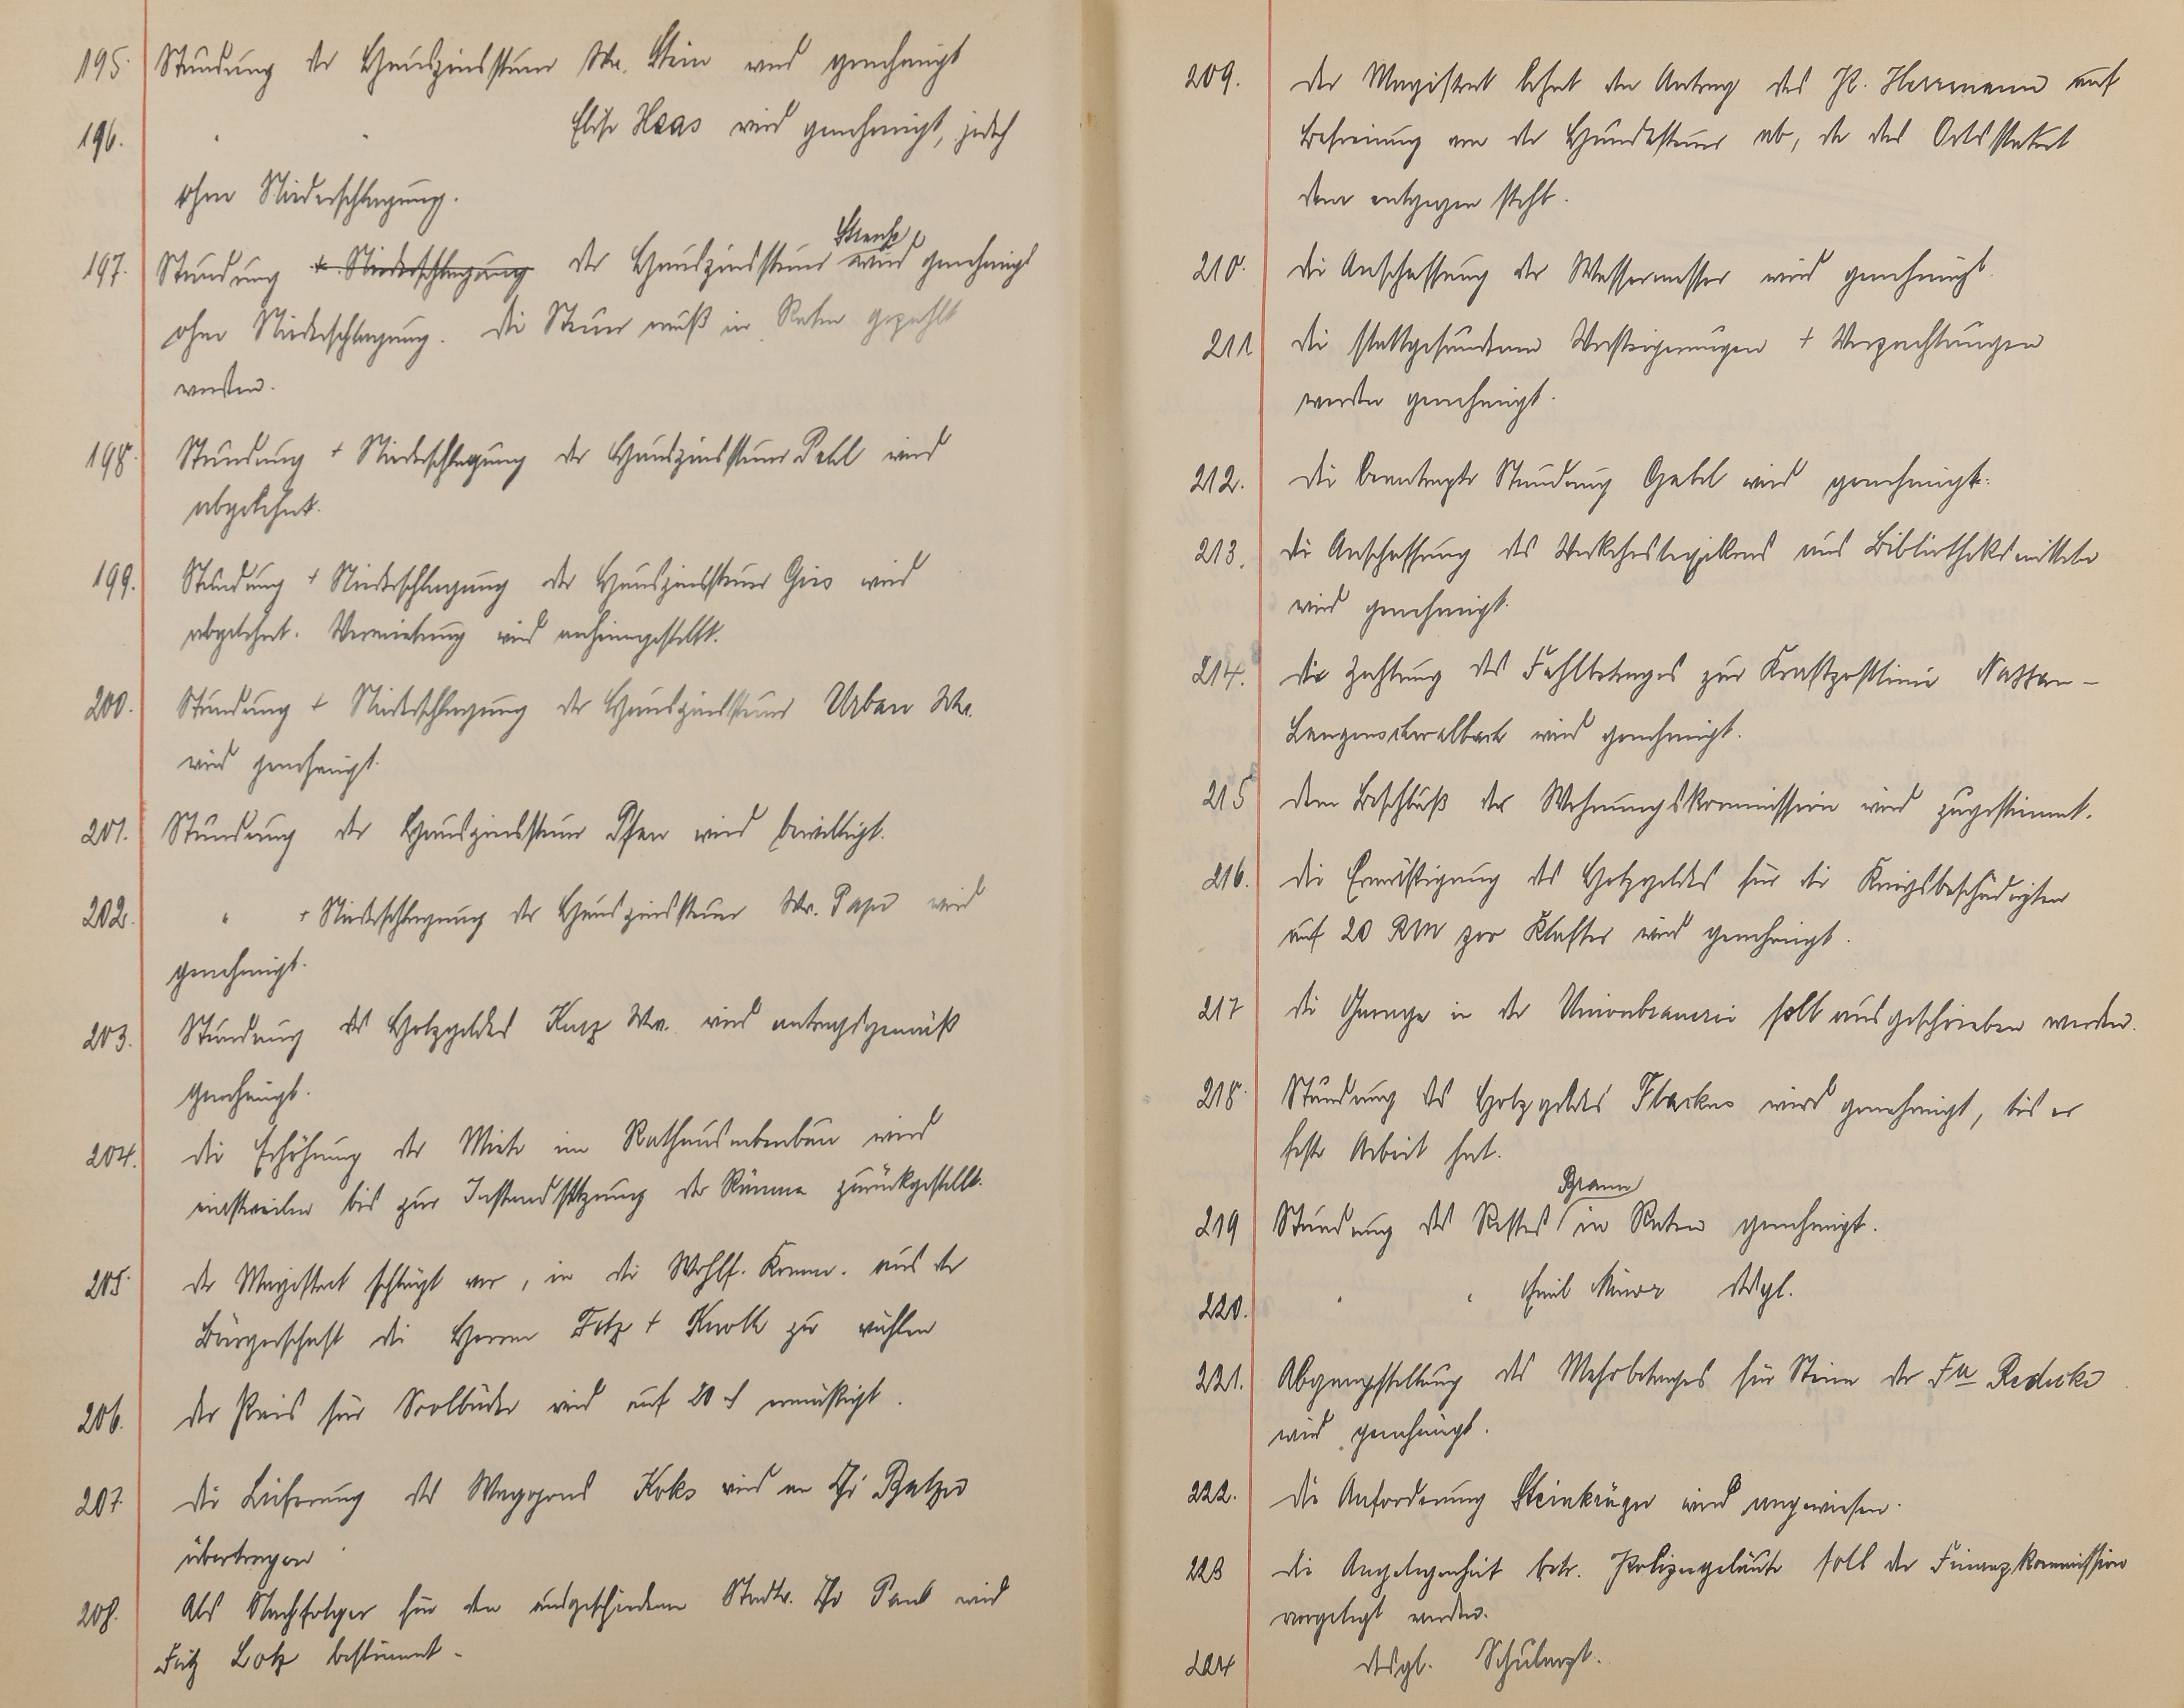 195. Stundung der Hauszinssteuer Ww. Stein wird genehmigt
196. " " Elise Haas wird genehmigt, jedoch
ohne Niederschlagung.
197. Stundung + Niederschlagung der Hauszinssteuer wird genehmigt
ohne Niederschlagung. Die Steuer muß in Raten gezahlt
werden.
198. Stundung + Niederschlagung der Hauszinssteuer wird
abgelehnt.
199. Stundung + Niederschlagung der Hauszinssteuer wird
abgelehnt. Vermietung wird anheimgestellt.
200. Stundung + Niederschlagung der Hauszinssteuer Urban Ww.
wird genehmigt.
201. Stundung der Hauszinssteuer wird bewilligt.
202. " + Niederschlagung der Hauszinssteuer Ww. wird
genehmigt.
203. Stundung des Holzgeldes Ww. wird antragsgemäß
genehmigt.
204. Die Erhöhung der Miete im Rathausnebenbau wird
einstweilen bis zur Instandsetzung der Räume zurückgestellt.
205. Der Magistrat schlägt vor, in die Wohlf. Komm. aus der
Bürgerschaft die Herren + Knoth zu wählen
206. Der Preis für Soolbäder wird auf 20 ermäßigt.
207. Die Lieferung des Waggons Koks wird an
übertragen
208. Als Nachfolger für den ausgeschiedenen Stadtv. wird
Fritz Lotz bestimmt.
209. Der Magistrat lehnt den Antrag des H. Herrmann auf
Befreiung von der Hundesteuer ab, da das Ortsstatut
dem entgegen steht.
210. Die Anschaffung der Wassermesser wird genehmigt.
211 Die stattgefundenen Versteigerungen + Verpachtungen
werden genehmigt.
212. Die beantragte Stundung Gabel wird genehmigt.
213. Die Anschaffung des aus Bibliotheksmitteln
wird genehmigt.
214. Die Zahlung des Fehlbetrages zur Kraftpostlinie Nassau –
Langenschwalbach wird genehmigt.
215 Dem Beschluß der Wohnungskommission wird zugestimmt.
216. Die Ermäßigung des Holzgeldes für die Kriegsbeschädigten
auf 20 RM pro Klafter wird genehmigt.
217 Die Garage in der Unionbrauerei soll ausgeschrieben werden.
218. Stundung des Holzgeldes wird genehmigt, bis er
feste Arbeit hat.
Braun
219 Stundung des Restes in Raten genehmigt.
220. " " Emil Minor dsgl.
221. Abgangstellung des Mehrbetrages für Steine der Fa
wird genehmigt.
222. Die Anforderung Steinkrüger wird angewiesen.
223 Die Angelegenheit betr. Polizeigeläute soll der Finanzkommission
vorgelegt werden.
224 dsgl. Schularzt.